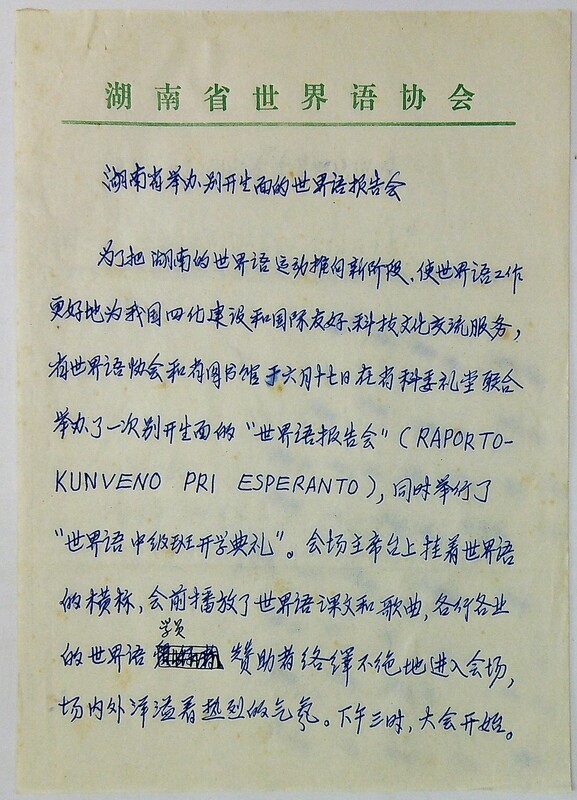 湖南省世界语协会
湖南省举办别开生面的世界语报告会
为了把湖南的世界语运动推向新阶段，使世界语工作
更好地为我国四化建设和国际友好、科技文化交流服务，
省世界语协会和省图书馆于六月十七日在省科委礼堂联合
举办了一次别开生面的“世界语报告会”（RAPORTO-
KUNVENO PRI ESPERANTO），同时举行了
“世界语中级班开学典礼”。会场主席台上挂着世界语
的横标，会前播放了世界语课文和歌曲，各行各业
学员
的世界语 赞助者络绎不绝地进入会场，
场内外洋溢着热烈的气氛。下午三时，大会开始。